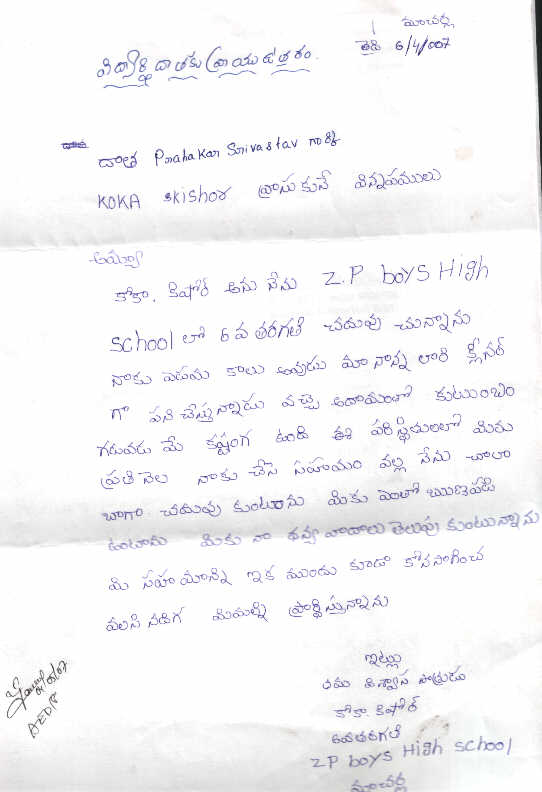 మాచర్ల
తేది 6/4/007
విద్యార్థి దాతకు వ్రాయు ఉత్తరం.
దాత Prahakar Srivastav గారికి
KOKA skishor వ్రాసుకునే విన్నపములు
అయ్యా
కోకా. కిషోర్ అను నేను Z.P boys High
school లో 6 వ తరగతి చదువు చున్నాను
నాకు ఎడమ కాలు అవుడు మా నాన్న లారి క్లీనర్
గా పని చేస్తున్నాడు వచ్చె ఆదాయంతో కుటుంబం
గడువడు మే కష్టంగ ఉంది ఈ పరిస్థితులలో మీరు
ప్రతి నెల నాకు చేసె సహాయం వల్ల నేను చాలా
బాగా చదువు కుంటాను మీకు ఎంతో ఋణపడి
ఉంటాను మీకు నా ధన్య వాదాలు తెలుపు కుంటున్నాను
మి సహాయాన్ని ఇక ముందు కూడా కోనసాగించ
వలసి నదిగ మిమల్ని ప్రార్థిస్తున్నాను
ఇట్లు
తమ విశ్వాస పాత్రుడు
కోకా. కిషోర్
6వతరగతి
ZP boys High school
మాచర్ల